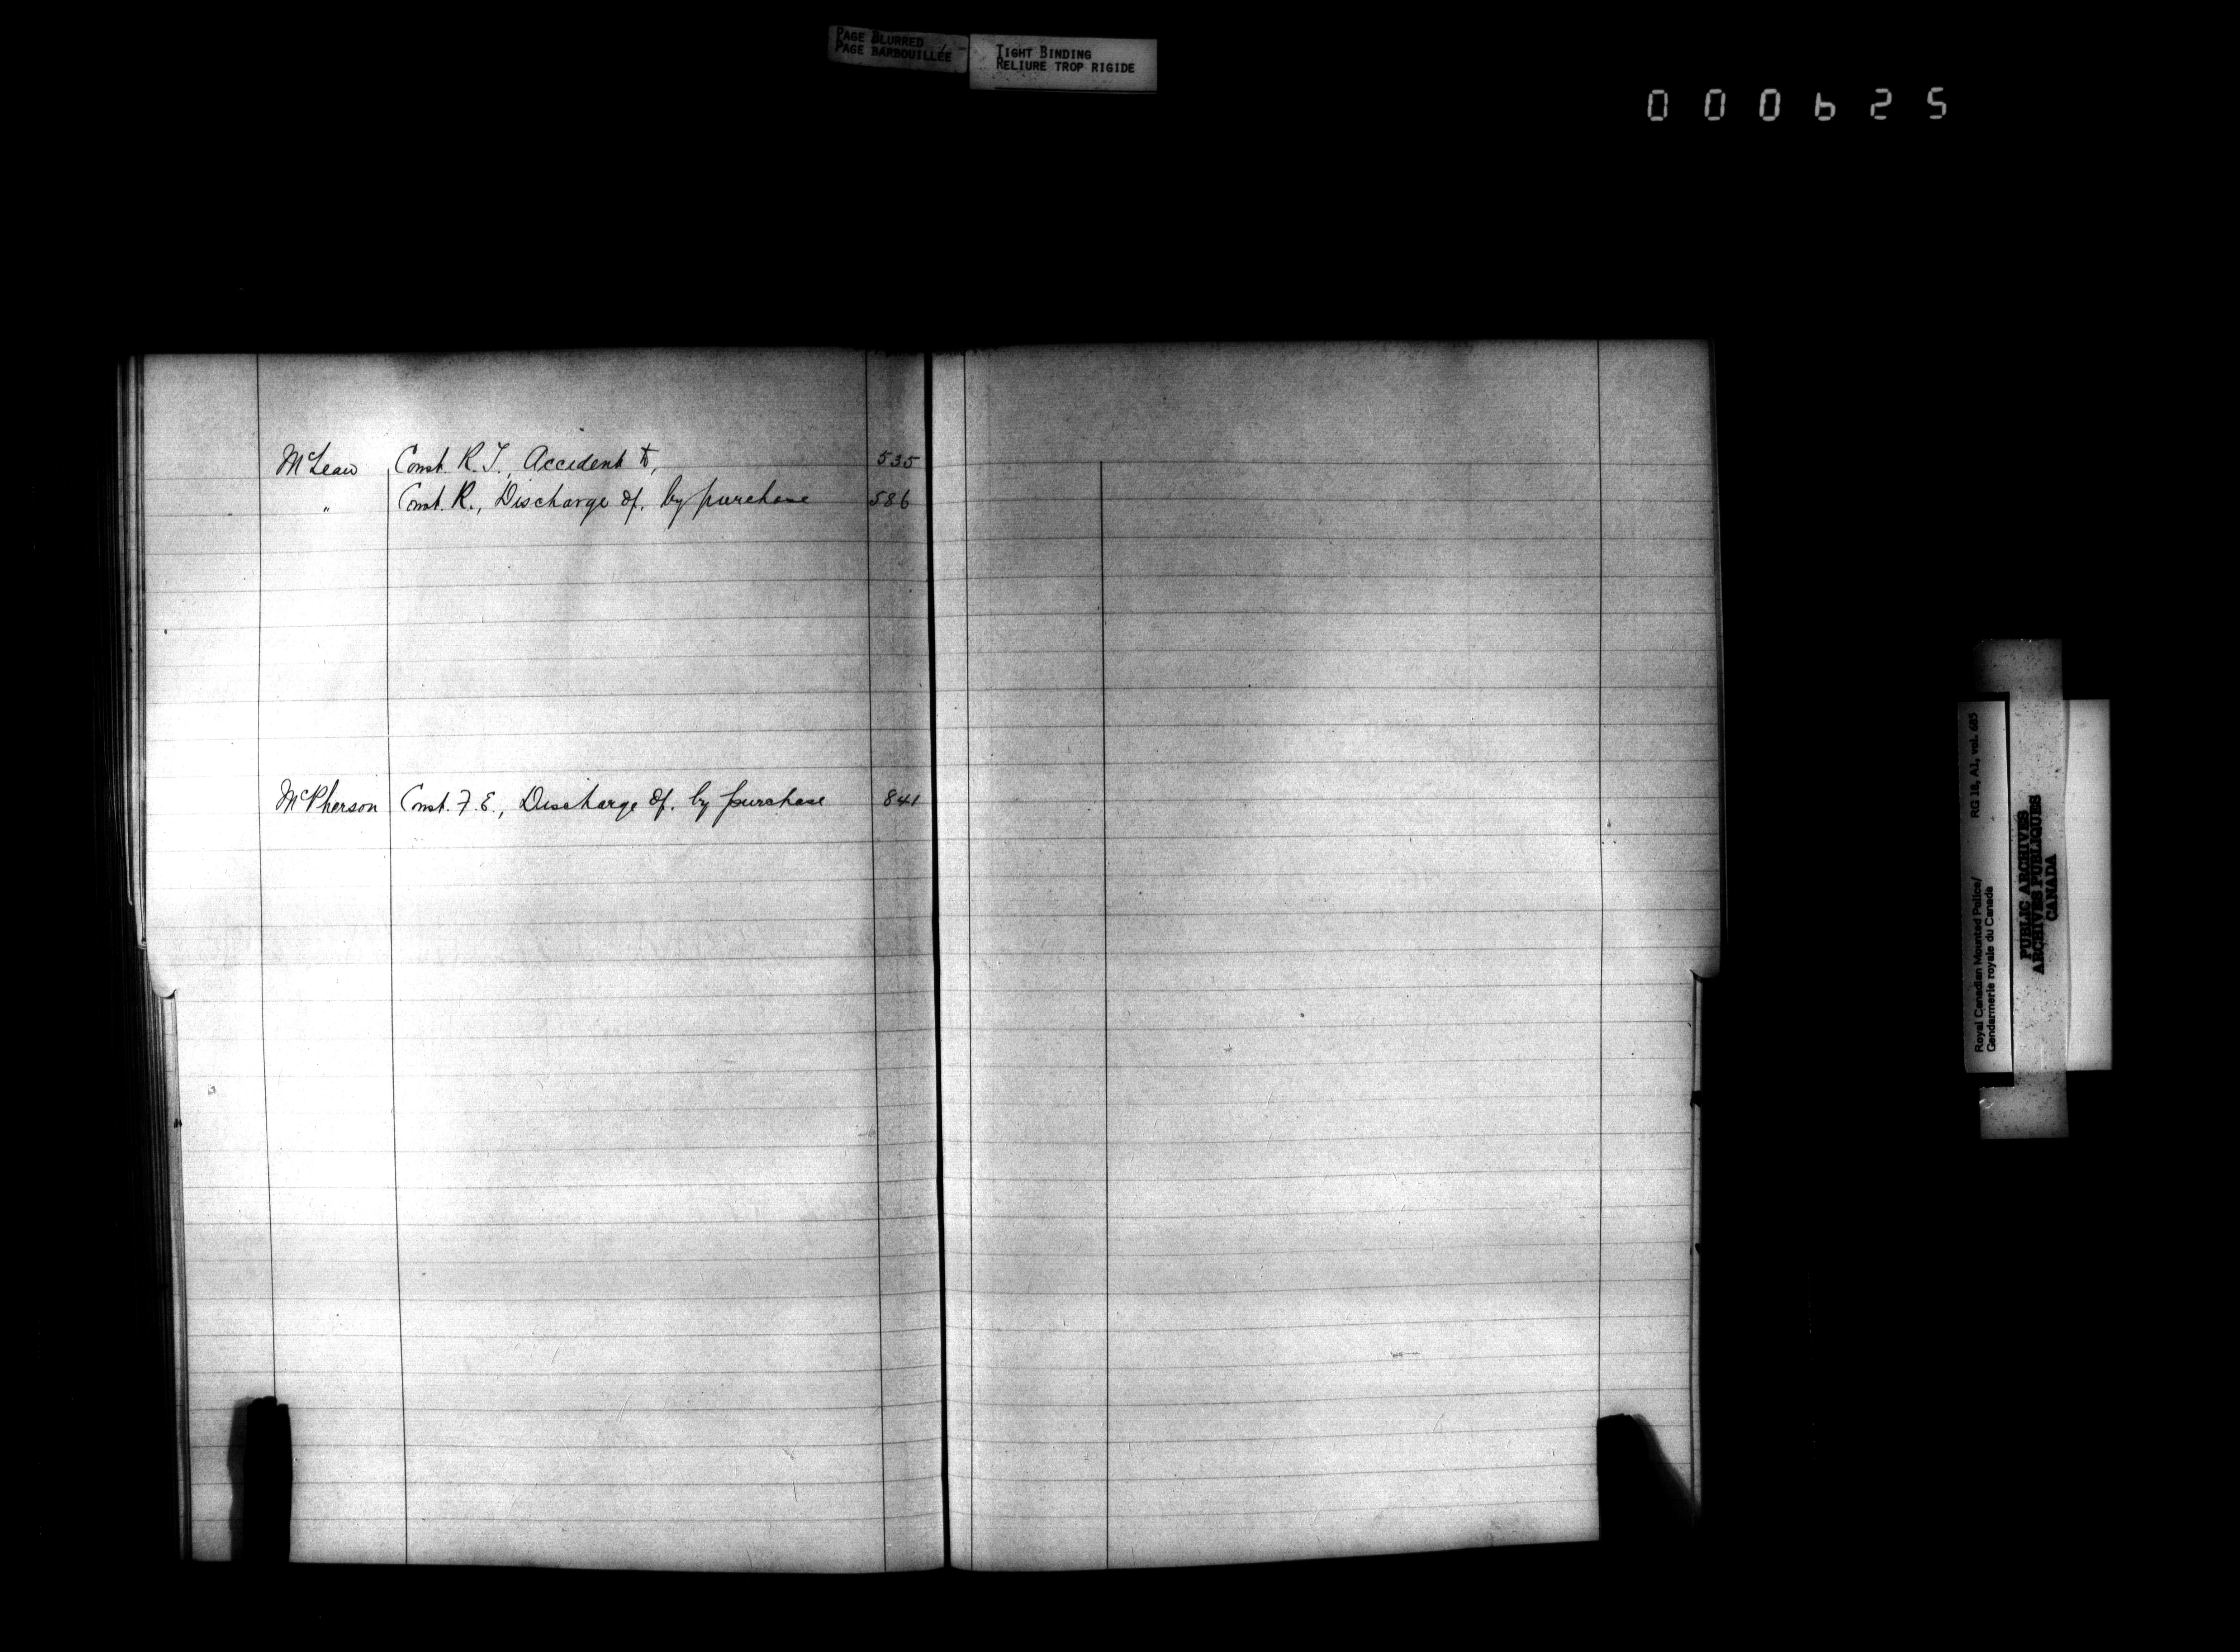 PAGE BLURRED
PAGE BARBOUILLÉE
TIGHT BINDING
RELIURE TROP RIGIDE
000625
McLean Const. R. T., Accident to, 535
" Const. R., Discharge of, by purchase 586
McPherson Const. F. E., Discharge of, by purchase 841
Royal Canadian Mounted Police/ RG 18, A1, vol. 685
Gendarmerie royale du Canada
PUBLIC ARCHIVES
ARCHIVES PUBLIQUES
CANADA